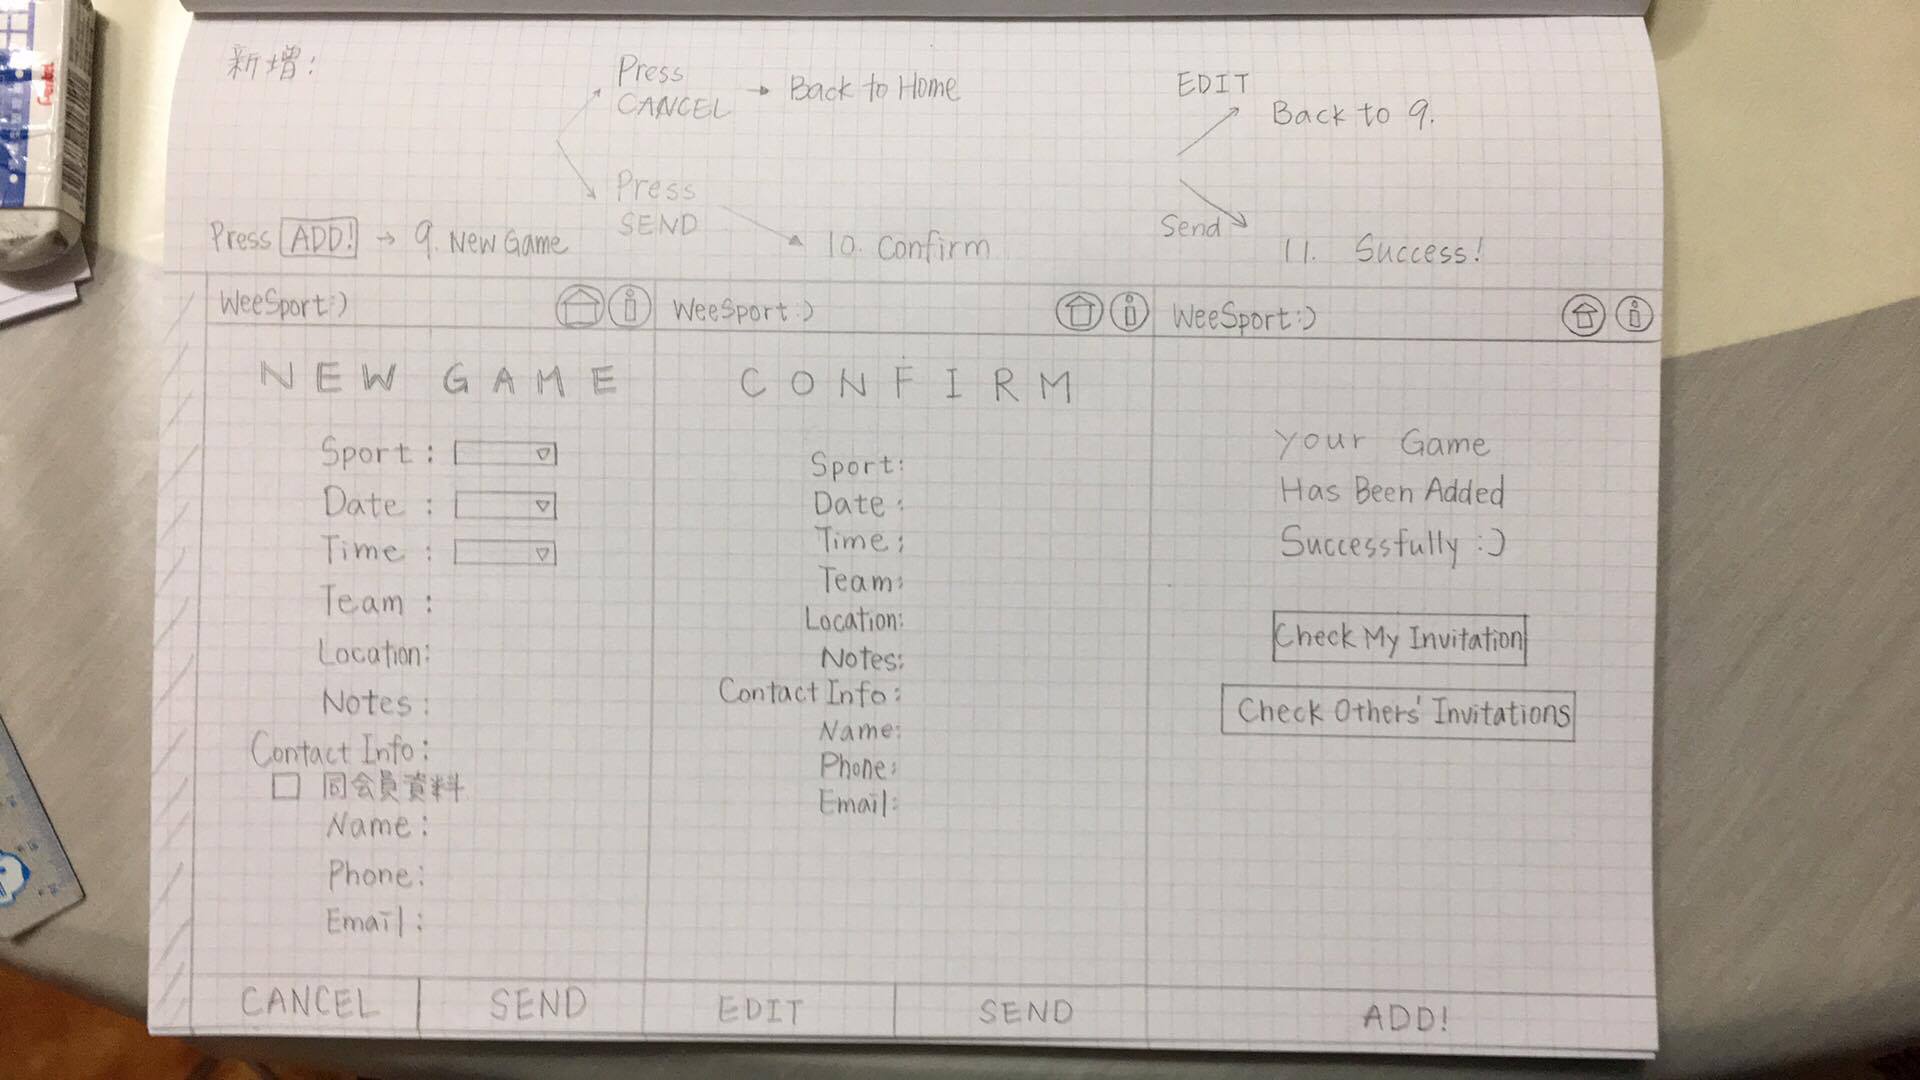 新增:
Press
CANCEL → Back to Home
EDIT
Back to 9.
Press
SEND
Send
Press ADD! → 9. New Game
10. Confirm
11. Success!
WeeSport:)
NEW GAME
Sport:
Date:
Time:
Team:
Location:
Notes:
Contact Info:
同会員資料
Name:
Phone:
Email:
CANCEL
SEND
WeeSport:)
CONFIRM
Sport:
Date:
Time:
Team:
Location:
Notes:
Contact Info:
Name:
Phone:
Email:
EDIT
SEND
WeeSport:)
Your Game
Has Been Added
Successfully :)
Check My Invitation
Check Others' Invitations
ADD!